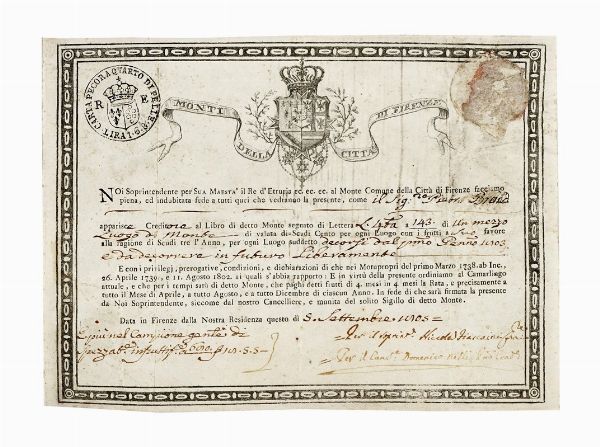 CARTAPECORA QUARTO DI PELLE
R E
LIRA 1.6.8
MONTI DELLA CITTÀ DI FIRENZE
NOi Soprintendente per SUA MAESTA' il Re d'Etruria ec. ec. ec. al Monte Comune della Città di Firenze facciamo
piena, ed indubitata fede a tutti quei che vedranno la presente, come il Sig.
apparisce Creditore al Libro di detto Monte segnato di Lettera L. a 143. di Un mezzo
Luogo di Monte di valuta di Scudi Cento per ogni Luogo con i frutti a Suo favore
alla ragione di Scudi tre l'Anno, per ogni Luogo suddetto decorsi dal primo Genn. 1803,
e da decorrere in futuro Liberamente
E con i privilegj, prerogative, condizioni, e dichiarazioni di che nei Motuproprj del primo Marzo 1738. ab Inc.,
26. Aprile 1739. e 11. Agosto 1802. ai quali s'abbia rapporto: E in virtù della presente ordiniamo al Camarlingo
attuale, e che per i tempi sarà di detto Monte, che paghi detti frutti di 4. mesi in 4. mesi la Rata, e precisamente a
tutto il Mese di Aprile, a tutto Agosto, e a tutto Dicembre di ciascun Anno. In fede di che sarà firmata la presente
da Noi Soprintendente, siccome dal nostro Cancelliere, e munita del solito Sigillo di detto Monte.
Data in Firenze dalla Nostra Residenza questo dì 5. Settembre 1803
E più nel Campione gente di
Per il Nicolò
Per il Canc. Domenico